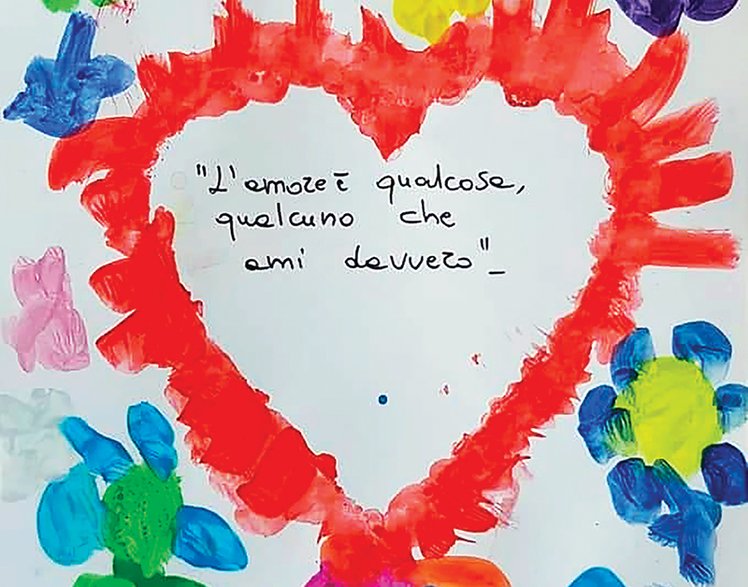 "L'amore è qualcosa,
qualcuno che
ami davvero"_